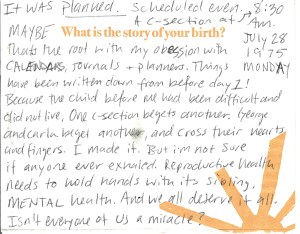 It was planned. Scheduled even. 8:30
A c-section at Am.
MAYBE What is the story of your birth? JULY 28
Thats the root with my obession with 1975
CALENDARS, Journals + planners. Things MONDAY
have been written down from before day 1!
Because the child before me had been difficult and
did not live, One c-section begets another. George
and carla beget another, and cross their hearts
and fingers. I made it. But im not sure
if anyone ever exhaled. Reproductive health
needs to hold hands with its sibling,
MENTAL health. And we all deserve it all.
Isn't everyone of us a miracle?